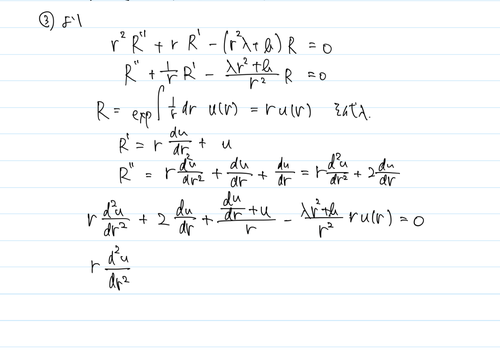 ③ より
r² R'' + r R' - (r²λ+k) R = 0
R'' + 1/r R' - (λr²+k)/r² R = 0
R = exp∫ 1/r dr u(r) = r u(r) とおくと、
R' = r du/dr + u
R'' = r d²u/dr² + du/dr + du/dr = r d²u/dr² + 2 du/dr
r d²u/dr² + 2 du/dr + (du/dr + u)/r - (λr²+k)/r² r u(r) = 0
r d²u/dr²